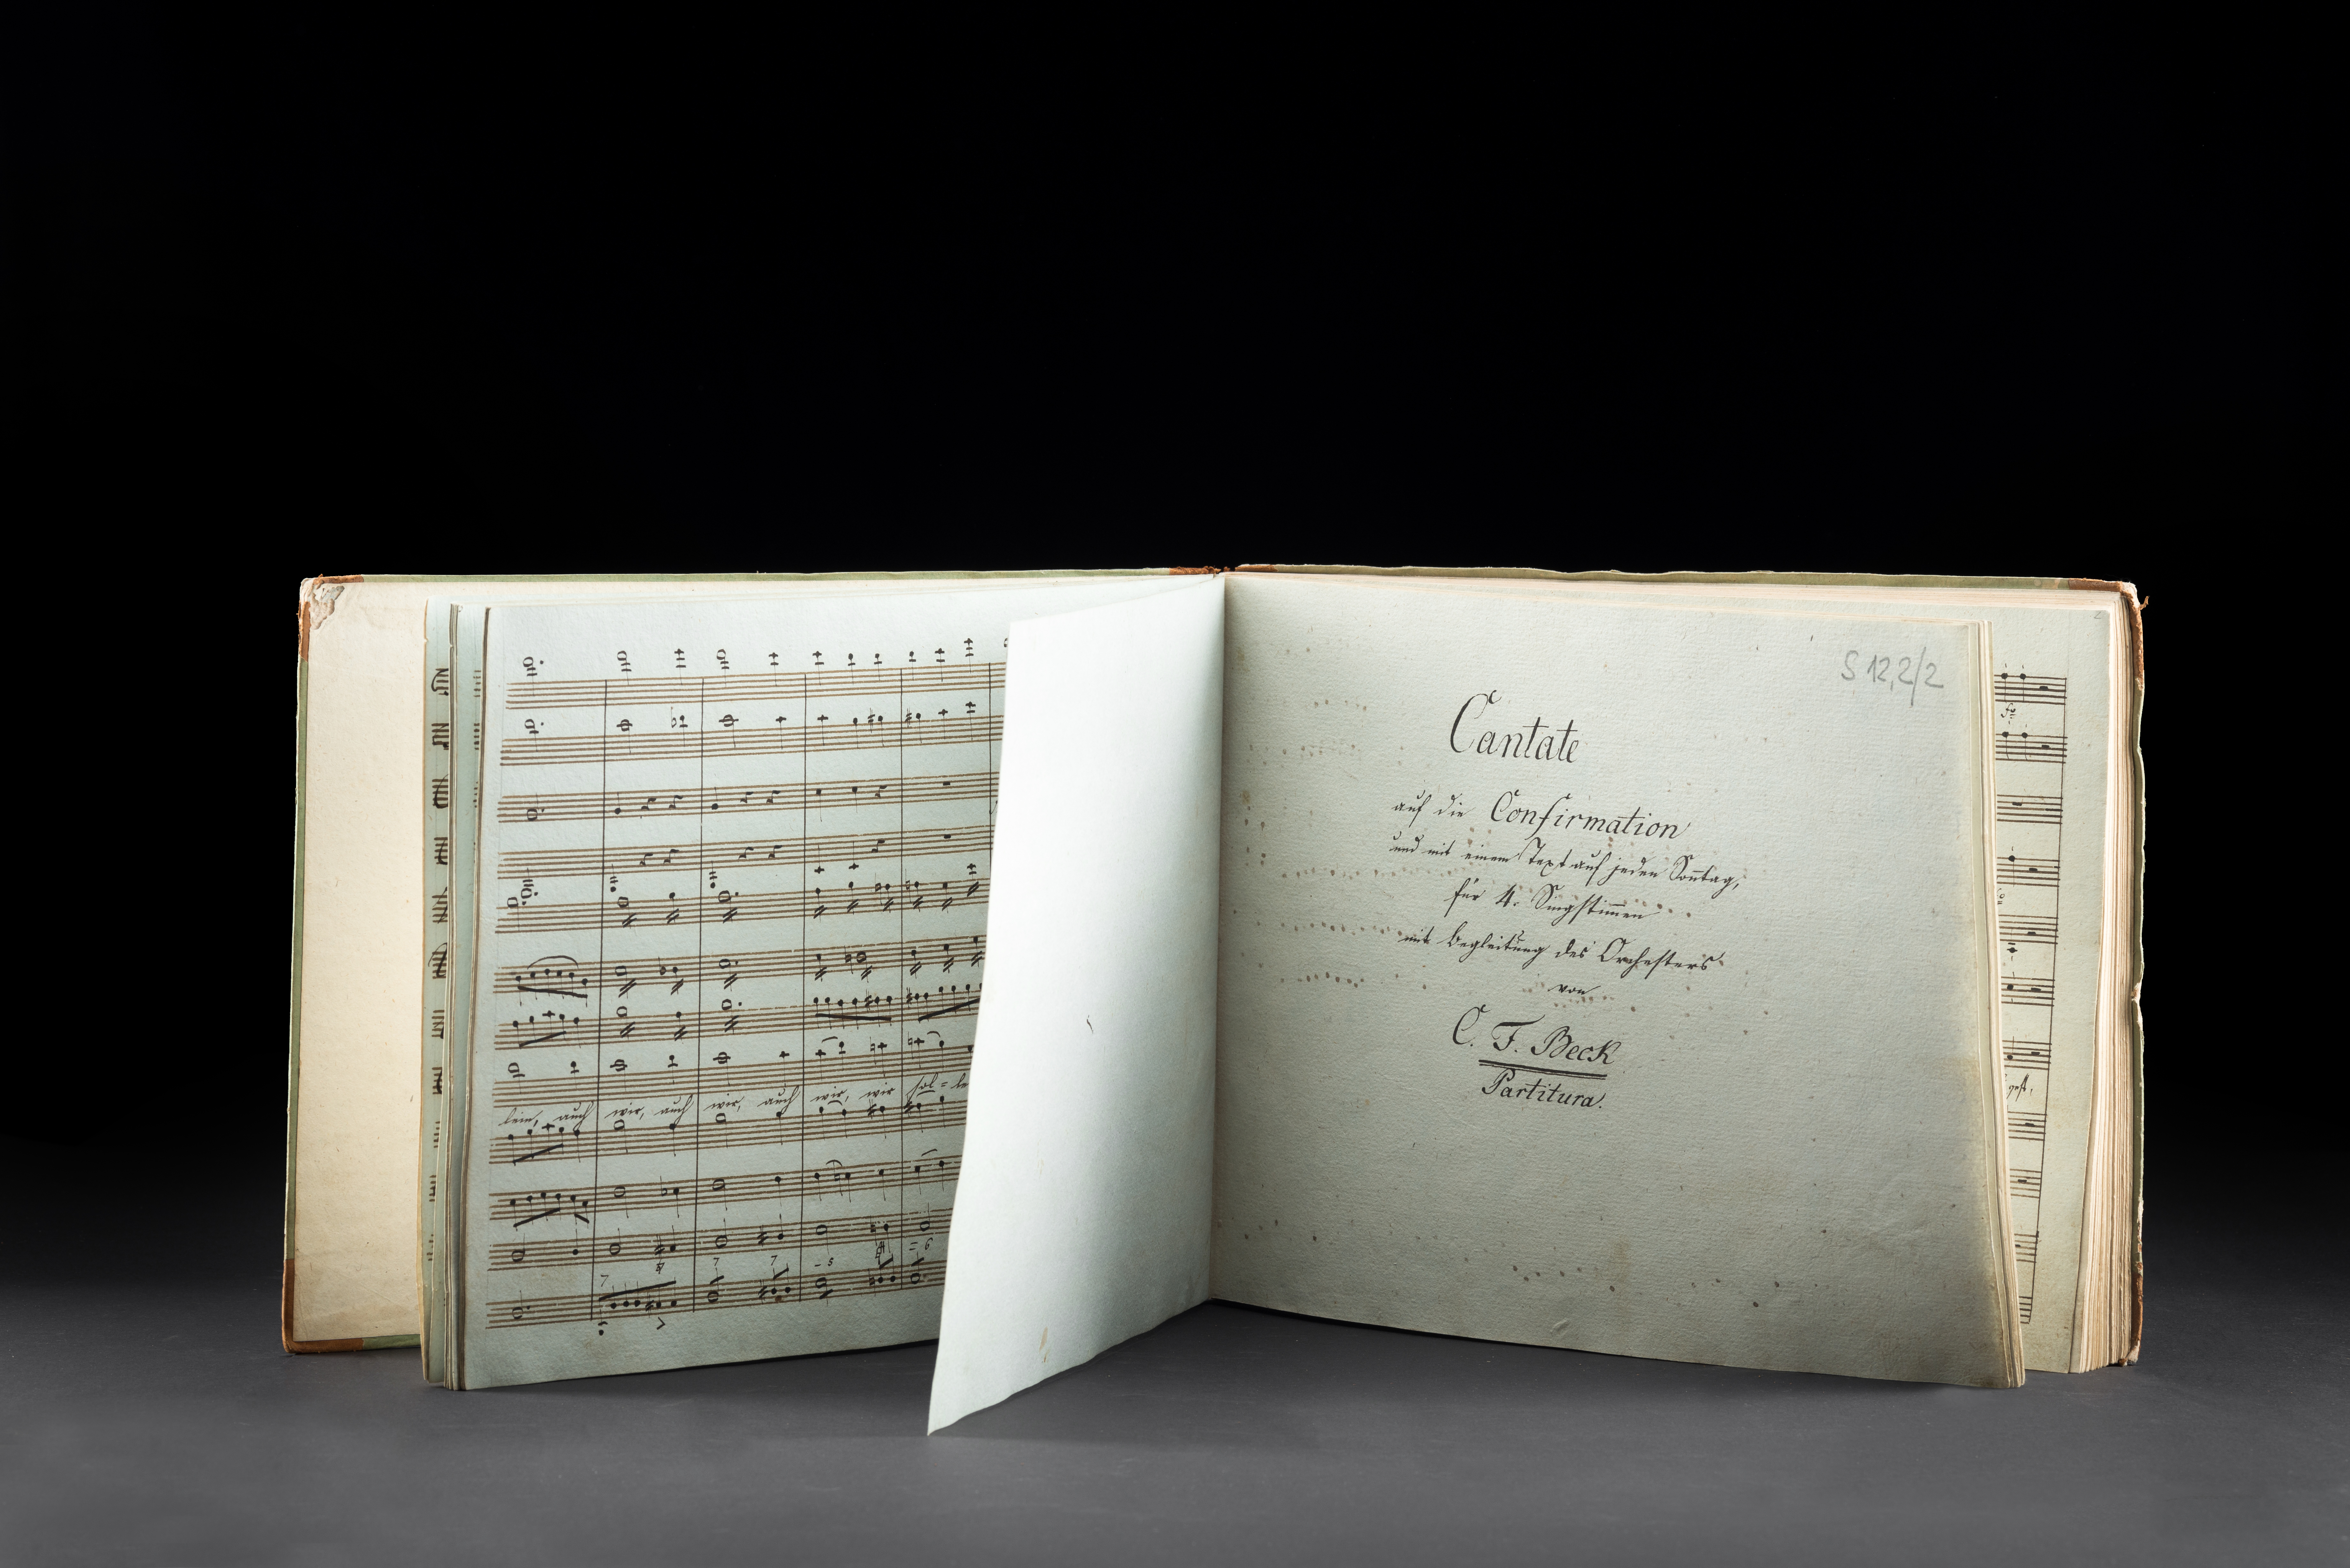 lein, auch wir, auch wir, auch wir, wir sol=le
S 12,2/2
Cantate
auf die Confirmation
und mit einem Text auf jeden Son̄tag,
für 4. Singstim̄en
mit Begleitung des Orchesters
von
C. F. Beck
Partitura.